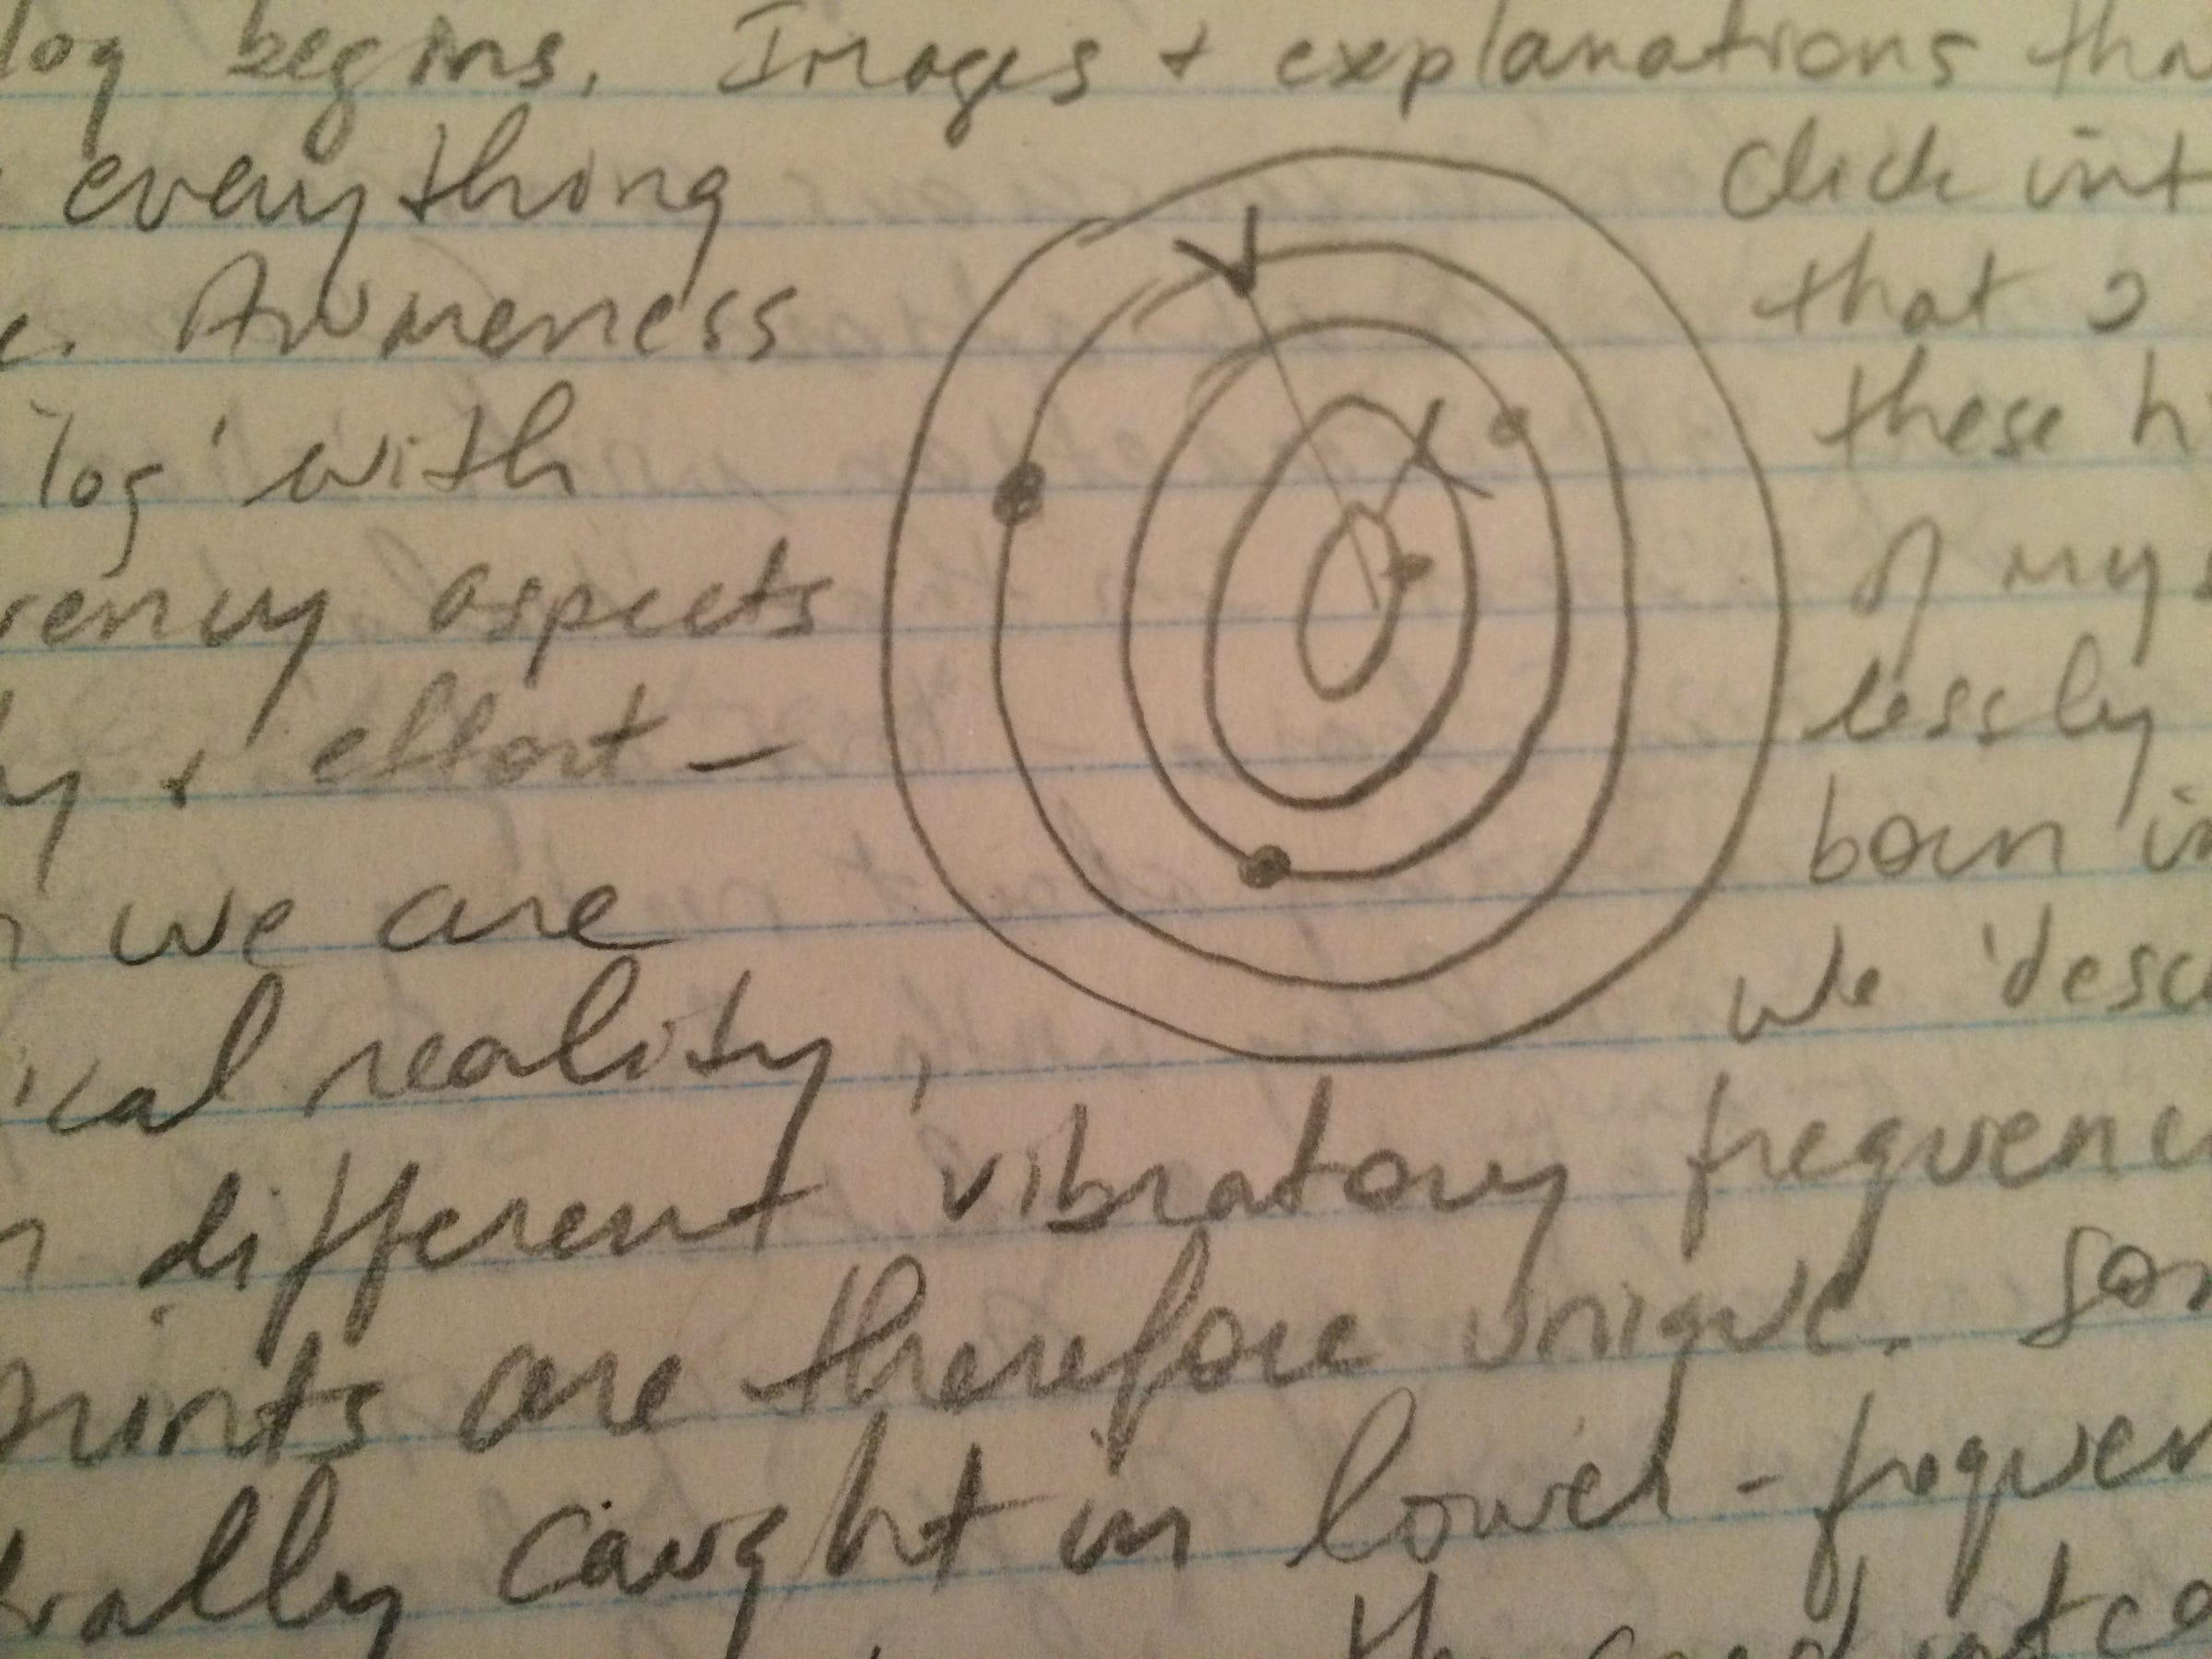 log begins. Images + explanations tha
everything click int
Awareness that
'log' with these h
rency aspects of my s
y + effort - lessly
we are born in
ical reality, we 'desc
different vibratory frequenc
are therefore unique. Som
rally caught in lower-frequen
the